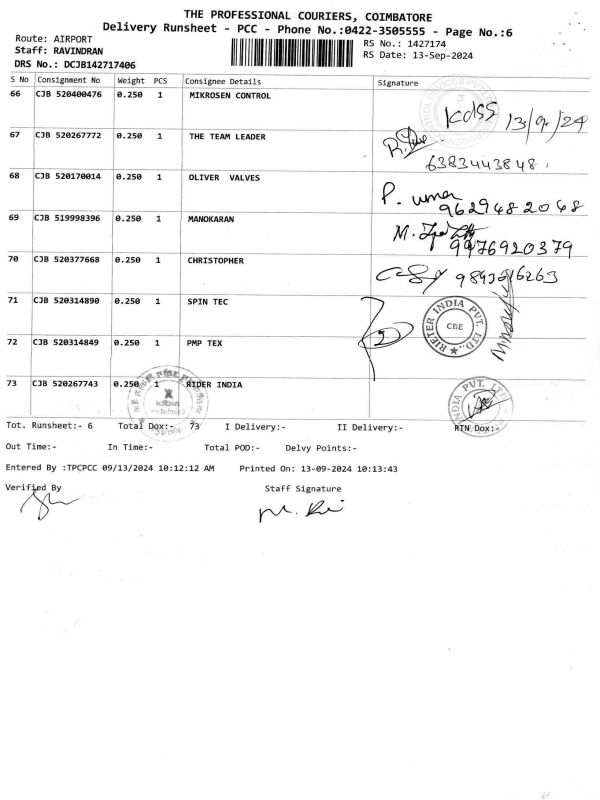 THE PROFESSIONAL COURIERS, COIMBATORE
Delivery Runsheet - PCC - Phone No.:0422-3505555 - Page No.:6
Route: AIRPORT
RS No.: 1427174
Staff: RAVINDRAN
RS Date: 13-Sep-2024
DRS No.: DCJB142717406
S No Consignment No Weight PCS Consignee Details Signature
66 CJB 520400476 0.250 1 MIKROSEN CONTROL
13/9/24
67 CJB 520267772 0.250 1 THE TEAM LEADER
6383443848
68 CJB 520170014 0.250 1 OLIVER VALVES P. uma
9629482048
69 CJB 519998396 0.250 1 MANOKARAN M.
9976920379
70 CJB 520377668 0.250 1 CHRISTOPHER
71 CJB 520314890 0.250 1 SPIN TEC
RIETER INDIA PVT. LTD.
CBE
72 CJB 520314849 0.250 1 PMP TEX
73 CJB 520267743 0.250 1 RIDER INDIA
INDIA PVT. LTD.
Tot. Runsheet:- 6 Total Dox:- 73 I Delivery:- II Delivery:- RTN Dox:-
Out Time:- In Time:- Total POD:- Delvy Points:-
Entered By :TPCPCC 09/13/2024 10:12:12 AM Printed On: 13-09-2024 10:13:43
Verified By Staff Signature